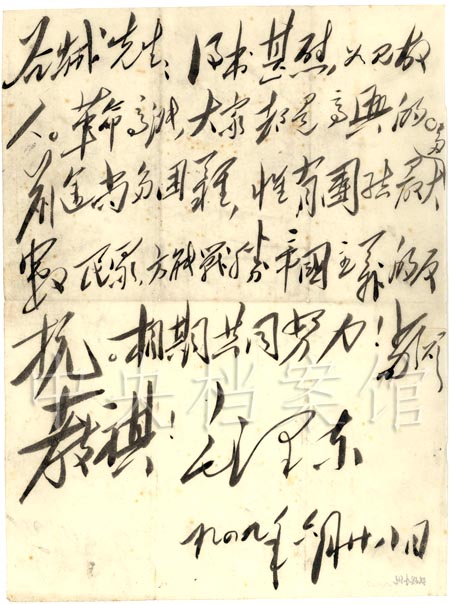 若城先生:得书甚慰,如见故
人。革命高潮,大家都是高兴的。
前途尚多困难,惟有团结最大
多数民众,方能战胜帝国主义的反
抗。相期共同努力!
教祺!
毛泽东
一九四九年六月廿八日
中央档案馆